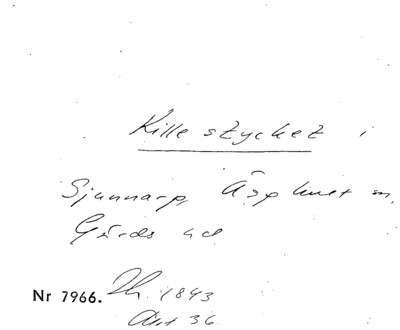 Killestycket i
Sjunnarp, Äsphult sn,
Gärds hd
Nr 7966. Th. 1843
Akt 36.